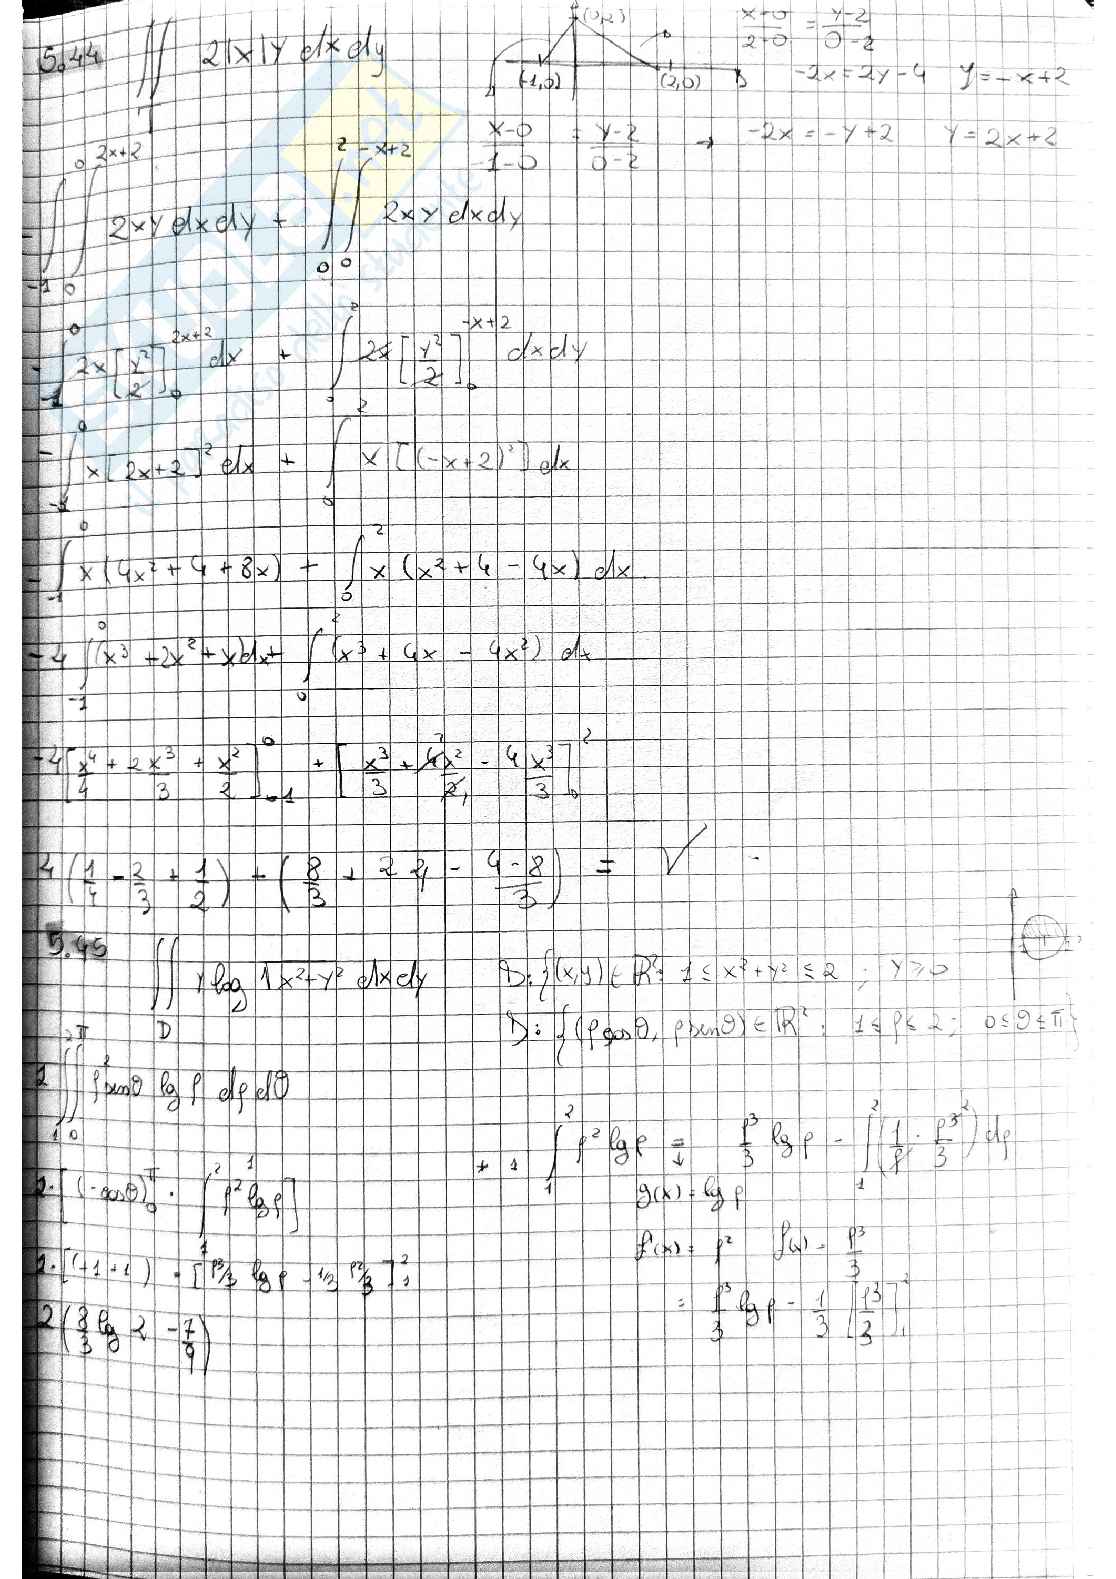 5.44 ∬_T 2|x|y dxdy
(0,2)
(-1,0) (2,0)
x-0/2-0 = y-2/0-2
-2x = 2y-4 y = -x+2
x-0/-1-0 = y-2/0-2 → -2x = -y+2 y = 2x+2
-∫_{-1}^{0} ∫_{0}^{2x+2} 2xy dxdy + ∫_{0}^{2} ∫_{0}^{-x+2} 2xy dxdy
-∫_{-1}^{0} 2x [y²/2]_{0}^{2x+2} dx + ∫_{0}^{2} 2x [y²/2]_{0}^{-x+2} dxdy
-∫_{-1}^{0} x[2x+2]² dx + ∫_{0}^{2} x[(-x+2)²] dx
-∫_{-1}^{0} x(4x²+4+8x) + ∫_{0}^{2} x(x²+4-4x) dx
-4∫_{-1}^{0} (x³+2x²+x)dx + ∫_{0}^{2} (x³+4x-4x²) dx
-4[x⁴/4 + 2x³/3 + x²/2]_{-1}^{0} + [x³/3 + 4x²/2 - 4x³/3]_{0}^{2}
4(1/4 - 2/3 + 1/2) + (8/3 + 2 4 - 4-8/3) = √
5.45 ∬_D y log √x²+y² dxdy D:{(x,y)∈R²: 1≤x²+y²≤2; y≥0
D:{(ρcosθ, ρsenθ)∈R²: 1≤ρ≤2; 0≤θ≤π}
2∫_{1}^{2}∫_{0}^{π} ρ²senθ lg ρ dρdθ
∫_{1}^{2} ρ² lg ρ = ρ³/3 lg ρ - ∫_{1}^{2} (1/ρ · ρ³/3) dρ
2·[(-cosθ)_{0}^{π} · ∫_{1}^{2} ρ² lg ρ]
g(x) = lg ρ
f'(x) = ρ² f(x) = ρ³/3
2·[(+1+1) · [ρ³/3 lg ρ - 1/3 ρ³/3]_{1}^{2}
= ρ³/3 lg ρ - 1/3 [ρ³/3]_{1}^{2}
2(8/3 lg 2 - 7/9)